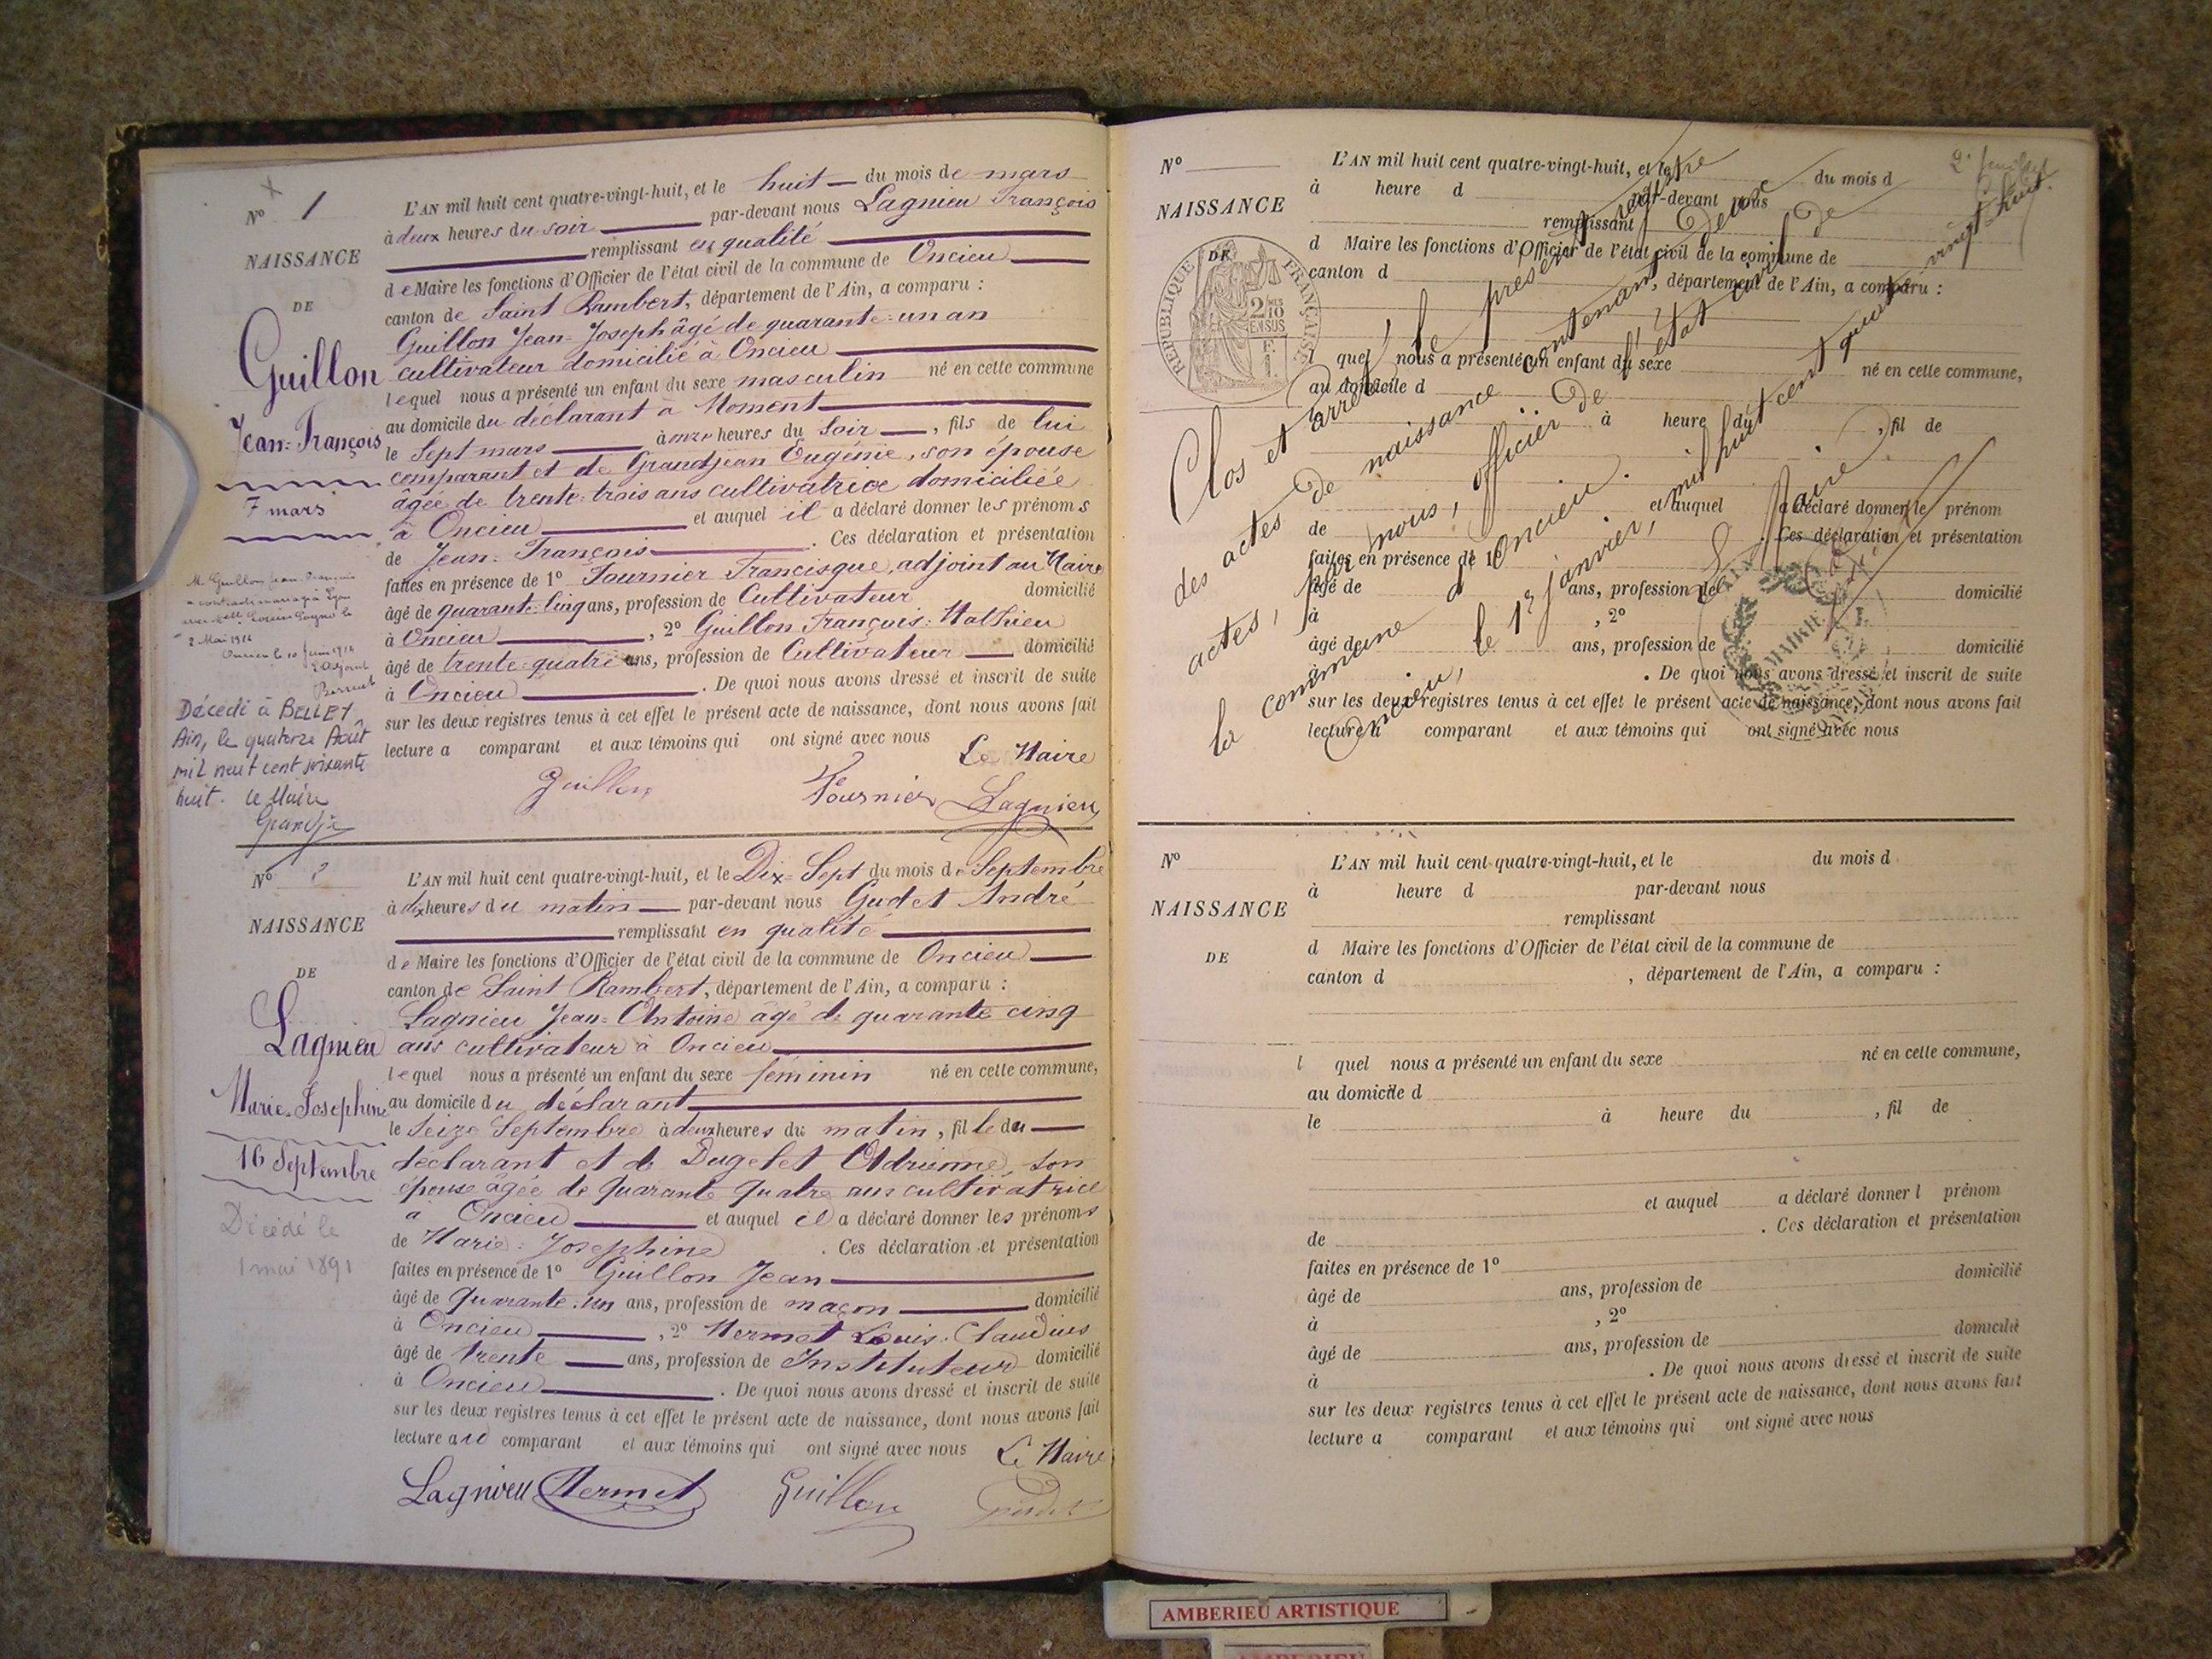 Nº 1
NAISSANCE
DE
Guillon
Jean-François
7 mars
M. Guillon Jean François
a contracté mariage à Lyon
2 Mai 1914
Oncieu le 10 Juin 1914
L'adjoint
Décédé à BELLEY
Ain, le quatorze Août
mil neuf cent soixante
huit. Le Maire
L'AN mil huit cent quatre-vingt-huit, et le huit du mois de mars
à deux heures du soir par-devant nous Lagnieu François
remplissant en qualité
de Maire les fonctions d'Officier de l'état civil de la commune de Oncieu
canton de Saint Rambert, département de l'Ain, a comparu :
Guillon Jean-Joseph âgé de quarante-un an
cultivateur domicilié à Oncieu
lequel nous a présenté un enfant du sexe masculin né en cette commune
au domicile du déclarant à Moment
le Sept mars à onze heures du soir, fils de lui
comparant et de Grandjean Eugénie, son épouse
âgée de trente-trois ans cultivatrice domiciliée
à Oncieu et auquel il a déclaré donner les prénoms
de Jean-François. Ces déclaration et présentation
faites en présence de 1º Fournier Francisque, adjoint au Maire
âgé de quarante-cinq ans, profession de Cultivateur domicilié
à Oncieu, 2º Guillon François-Mathieu
âgé de trente-quatre ans, profession de Cultivateur domicilié
à Oncieu. De quoi nous avons dressé et inscrit de suite
sur les deux registres tenus à cet effet le présent acte de naissance, dont nous avons fait
lecture a comparant et aux témoins qui ont signé avec nous
Le Maire
Guillon Fournier Lagnieu
Nº 2
NAISSANCE
DE
Lagnieu
Marie-Josephine
16 Septembre
Décédé le
1 mai 1891
L'AN mil huit cent quatre-vingt-huit, et le Dix-Sept du mois de Septembre
à dix heures du matin par-devant nous Gudet André
remplissant en qualité
de Maire les fonctions d'Officier de l'état civil de la commune de Oncieu
canton de Saint Rambert, département de l'Ain, a comparu :
Lagnieu Jean-Antoine âgé de quarante cinq
ans cultivateur à Oncieu
lequel nous a présenté un enfant du sexe féminin né en cette commune,
au domicile du déclarant
le Seize Septembre à deux heures du matin, fille du
déclarant et de Dugelet Adrienne, son
épouse âgée de Quarante Quatre ans cultivatrice
a Oncieu et auquel il a déclaré donner les prénoms
de Marie-Josephine. Ces déclaration et présentation
faites en présence de 1º Guillon Jean
âgé de Quarante-un ans, profession de maçon domicilié
à Oncieu, 2º Mermet Louis-Claudius
âgé de trente ans, profession de Instituteur domicilié
à Oncieu. De quoi nous avons dressé et inscrit de suite
sur les deux registres tenus à cet effet le présent acte de naissance, dont nous avons fait
lecture au comparant et aux témoins qui ont signé avec nous
Le Maire
Lagnieu Mermet Guillon Gudet
2e feuillet
Nº
NAISSANCE
DE
RÉPUBLIQUE FRANÇAISE
L'AN mil huit cent quatre-vingt-huit, et le du mois d
à heure d par-devant nous
remplissant
d Maire les fonctions d'Officier de l'état civil de la commune de
canton d , département de l'Ain, a comparu :
l quel nous a présenté un enfant du sexe né en cette commune,
au domicile d
à heure du , fil de
et auquel a déclaré donner le prénom
de . Ces déclaration et présentation
faites en présence de 1º
âgé de ans, profession de domicilié
à , 2º
âgé de ans, profession de domicilié
. De quoi nous avons dressé et inscrit de suite
sur les deux registres tenus à cet effet le présent acte de naissance, dont nous avons fait
lecture a comparant et aux témoins qui ont signé avec nous
Clos et arrêté le présent registre
des actes de naissance contenant deux
actes, par nous, officier de l'état civil de
la commune d'Oncieu.
Oncieu, le 1er janvier, mil huit cent quatre vingt huit.
Le Maire
MAIRIE
Nº
NAISSANCE
DE
L'AN mil huit cent quatre-vingt-huit, et le du mois d
à heure d par-devant nous
remplissant
d Maire les fonctions d'Officier de l'état civil de la commune de
canton d , département de l'Ain, a comparu :
l quel nous a présenté un enfant du sexe né en cette commune,
au domicile d
le à heure du , fil de
et auquel a déclaré donner l prénom
de . Ces déclaration et présentation
faites en présence de 1º
âgé de ans, profession de domicilié
à , 2º
âgé de ans, profession de domicilié
à . De quoi nous avons dressé et inscrit de suite
sur les deux registres tenus à cet effet le présent acte de naissance, dont nous avons fait
lecture a comparant et aux témoins qui ont signé avec nous
AMBERIEU ARTISTIQUE
AMBERIEU